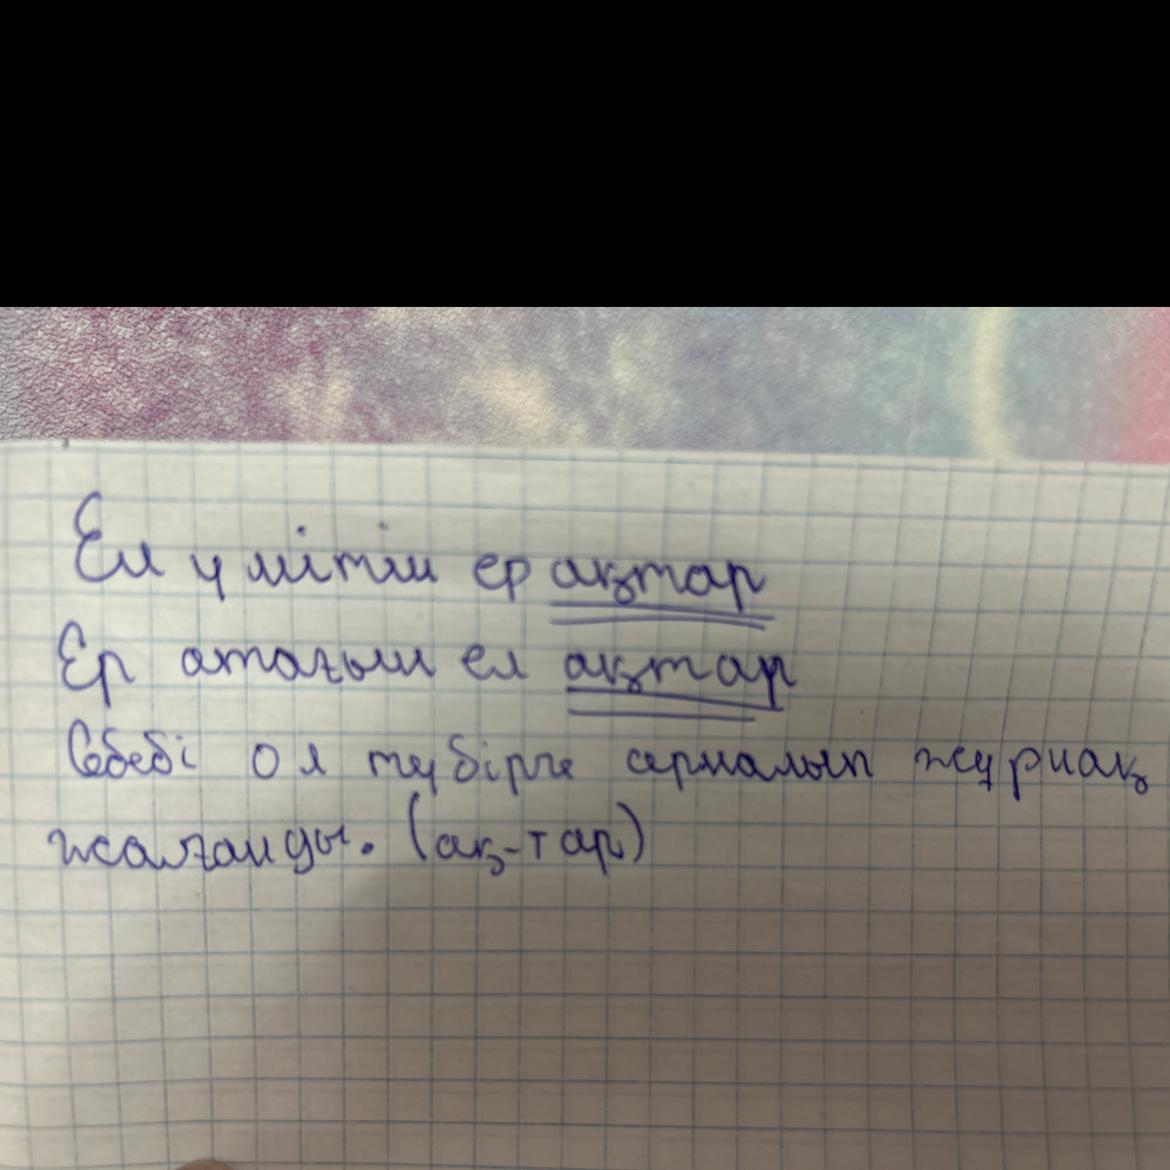 Ел үмітін ер ақтар
Ер атағын ел ақтар
Себебі ол түбірге сермалып жұрнақ
жалғанды. (ақ-тар)